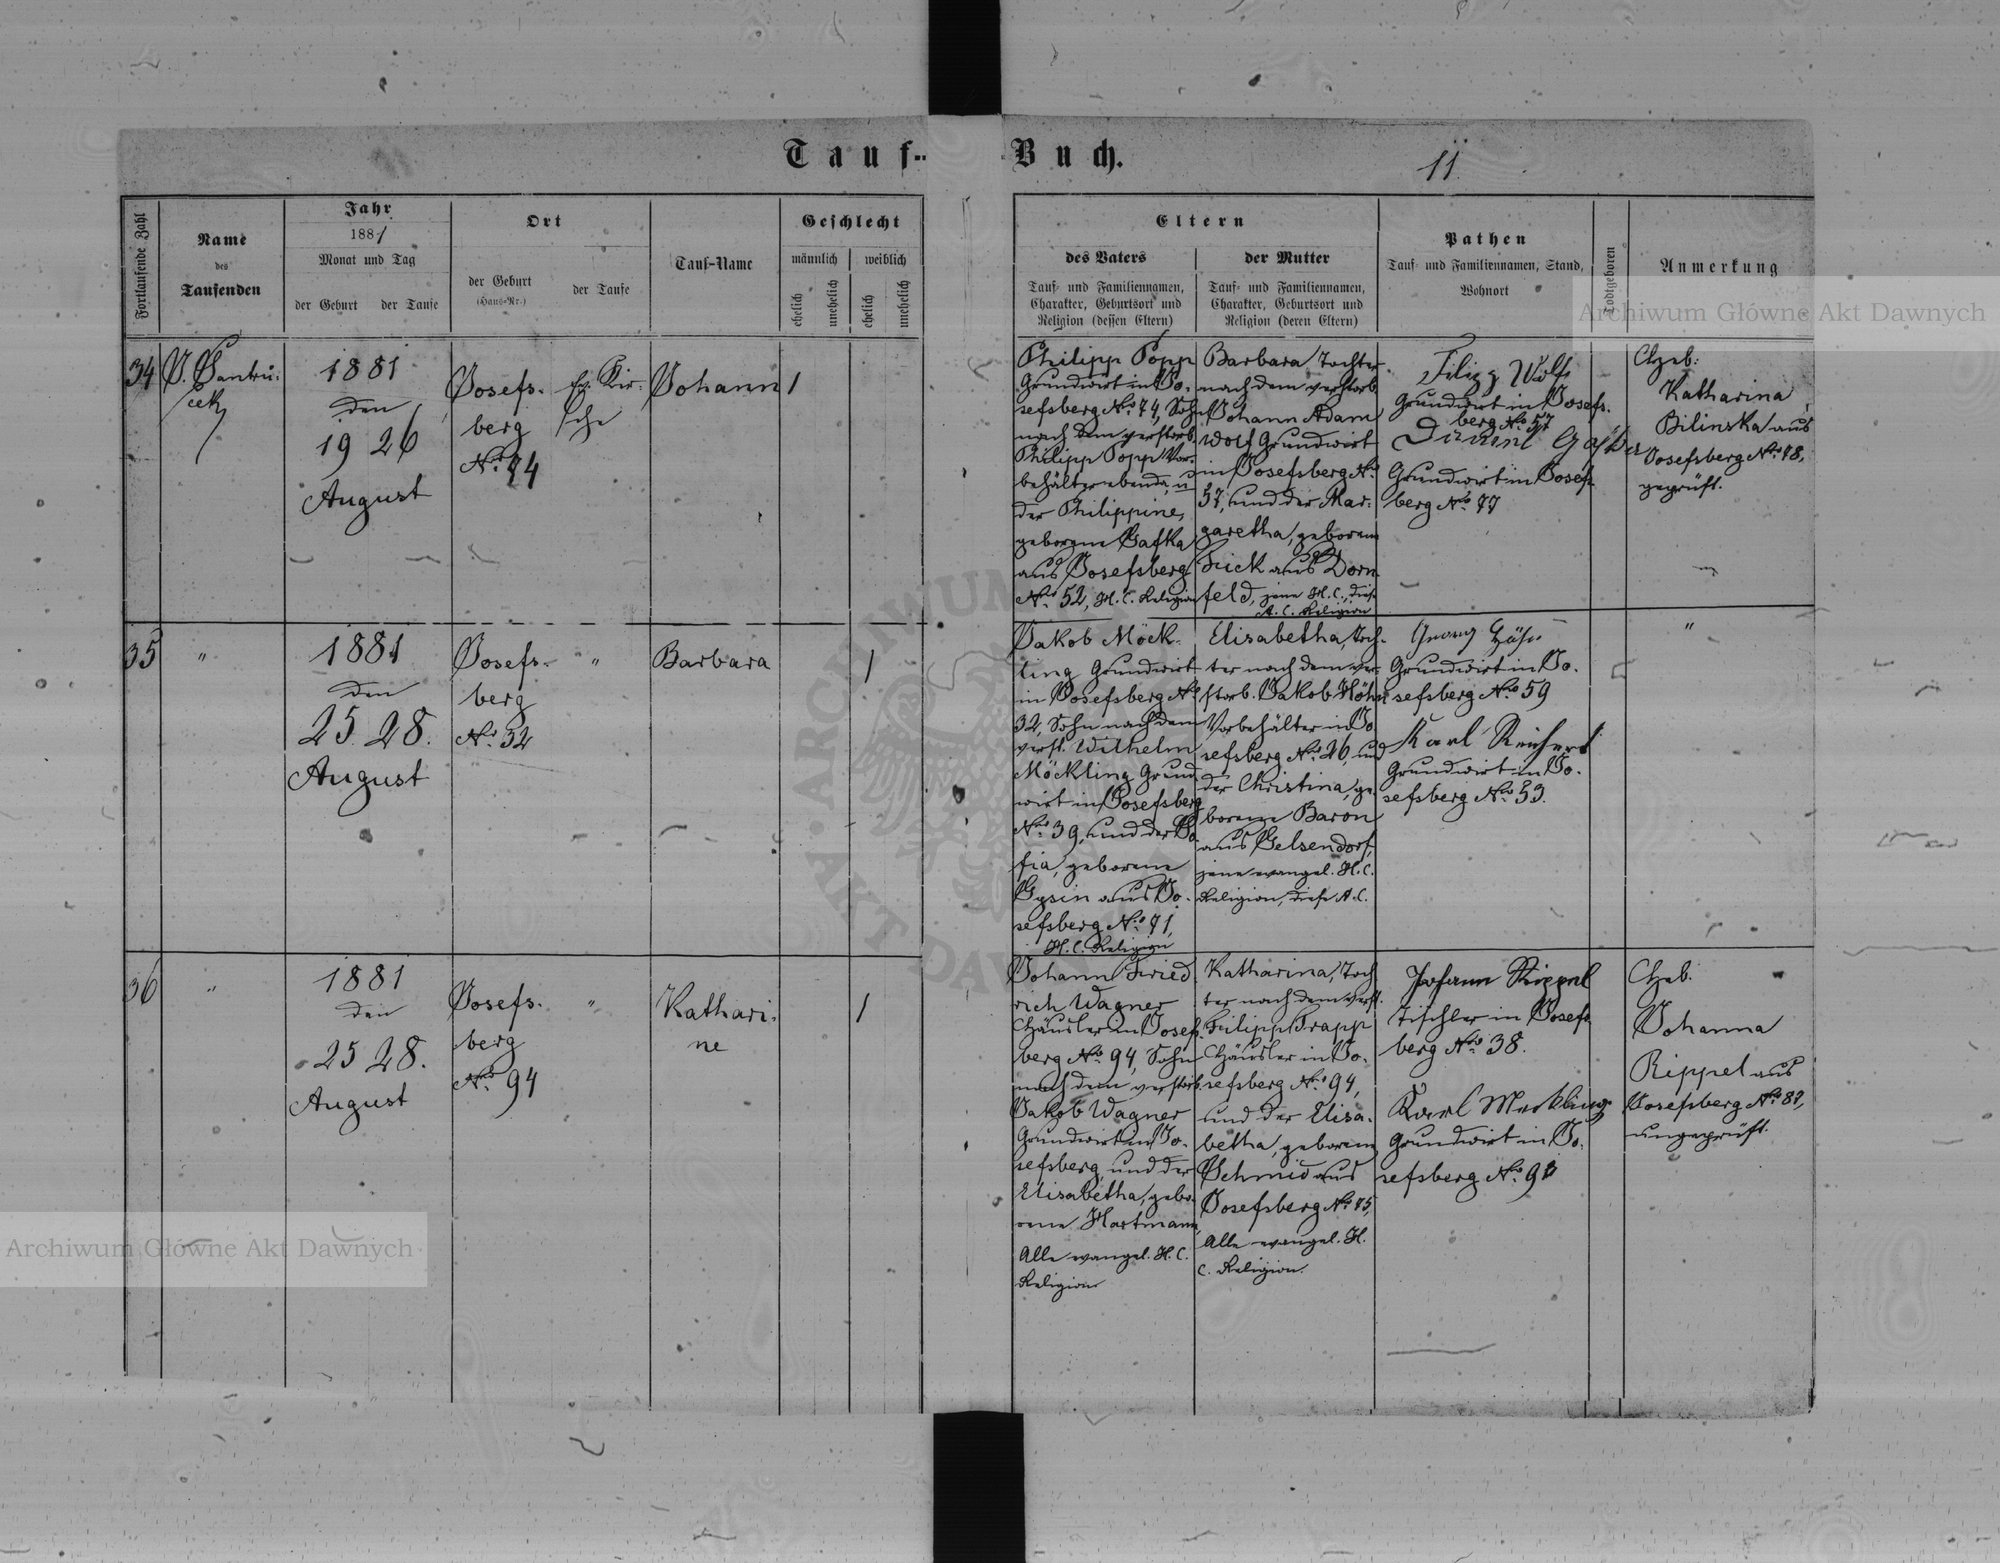 Tauf-Buch.
11.
Fortlaufende Zahl
Name
des
Taufenden
Jahr
1881
Monat und Tag
der Geburt der Taufe
Ort
der Geburt
(Haus-Nr.)
der Taufe
Tauf-Name
Geschlecht
männlich weiblich
ehelich
unehelich
ehelich
unehelich
Eltern
des Vaters
Tauf- und Familiennamen,
Charakter, Geburtsort und
Religion (dessen Eltern)
der Mutter
Tauf- und Familiennamen,
Charakter, Geburtsort und
Religion (deren Eltern)
Pathen
Tauf- und Familiennamen, Stand,
Wohnort
Todtgeboren
Anmerkung
34
1881
den
19 26
August
Josefs-
berg
No. 74
ev. Kir-
che
Johann
1
Philipp Popp
Grundwirt in Jo-
sefsberg No. 74, Sohn
nach dem verstorb.
Philipp Popp Vor-
behälter ebenda, u.
der Philippine,
geborene
aus Josefsberg
No. 52, H. C. Religion
Barbara, Tochter
nach dem verstorb.
Johann Adam
Wolf Grundwirt
in Josefsberg No.
57, und der Mar-
garetha, geborene
Frick aus Dorn-
feld, jene H. C., diese
A. C. Religion
Filipp Wolf
Grundwirt in Josefs-
berg No. 57
Grundwirt in Josefs-
berg No. 77
Heb:
Katharina
Bilinska aus
Josefsberg No. 78,
geprüft.
35
"
1881
den
25 28.
August
Josefs-
berg
No. 32
"
Barbara
1
Jakob Möck-
ling Grundwirt
in Josefsberg No.
32, Sohn nach dem
verst. Wilhelm
Möckling Grund-
wirt in Josefsberg
No. 39, und der So-
fia, geborene
Gysin aus Jo-
sefsberg No. 71,
H. C. Religion
Elisabetha, Toch-
ter nach dem ver-
storb. Jakob Höhn
Vorbehälter in Jo-
sefsberg No. 26, und
der Christina, ge-
borene Baron
aus Gelsendorf,
jene evangel. H. C.
Religion, diese A. C.
Georg Höhn
Grundwirt in Jo-
sefsberg No. 59
Karl Reichert
Grundwirt in Jo-
sefsberg No. 53.
"
36
"
1881
den
25 28.
August
Josefs-
berg
No. 94
"
Kathari-
ne
1
Johann Fried-
rich Wagner
Häusler in Josefs-
berg No. 94, Sohn
nach dem verstorb.
Jakob Wagner
Grundwirt in Jo-
sefsberg, und der
Elisabetha, gebo-
rene Hartmann,
Alle evangel. H. C.
Religion
Katharina, Toch-
ter nach dem verst.
Filipp Trapp
Häusler in Jo-
sefsberg No. 94,
und der Elisa-
betha, geborene
Schmid aus
Josefsberg No. 75,
Alle evangel. H.
C. Religion.
Johann Rippel
Tischler in Josefs-
berg No. 38.
Karl Merkling
Grundwirt in Jo-
sefsberg No.
Heb.
Johanna
Rippel aus
Josefsberg No. 87,
ungeprüft.
Archiwum Główne Akt Dawnych
Archiwum Główne Akt Dawnych